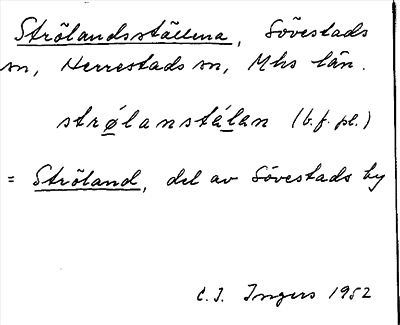 Strölandsställena, Sövestads
sn, Herrestads sn, Mhs län.
strølanstälan (b.f. pl.)
= Ströland, del av Sövestads by
C. I. Ingers 1952